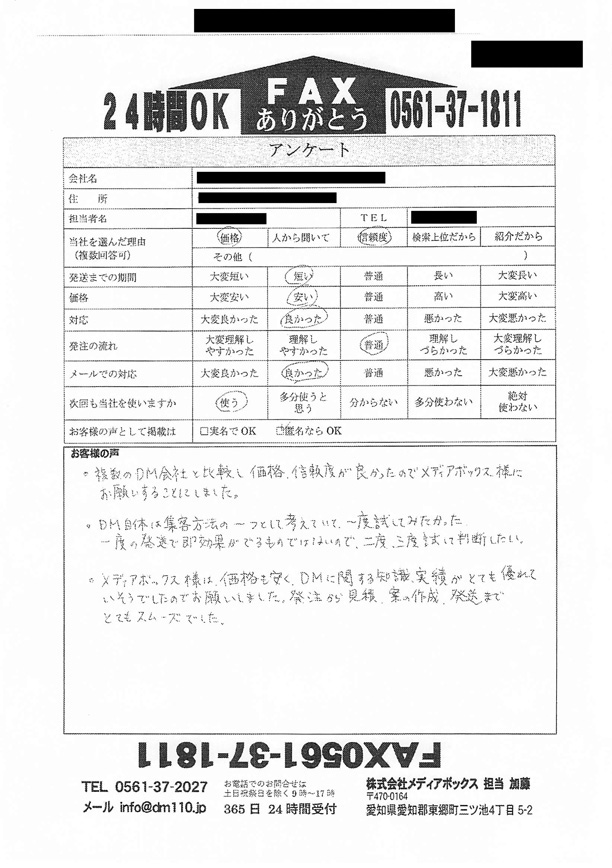 24時間OK
FAX
ありがとう
0561-37-1811
アンケート
会社名
住　所
担当者名 TEL
当社を選んだ理由 価格 人から聞いて 信頼度 検索上位だから 紹介だから
（複数回答可） その他（ ）
発送までの期間 大変短い 短い 普通 長い 大変長い
価格 大変安い 安い 普通 高い 大変高い
対応 大変良かった 良かった 普通 悪かった 大変悪かった
発注の流れ 大変理解しやすかった 理解しやすかった 普通 理解しづらかった 大変理解しづらかった
メールでの対応 大変良かった 良かった 普通 悪かった 大変悪かった
次回も当社を使いますか 使う 多分使うと思う 分からない 多分使わない 絶対使わない
お客様の声として掲載は □実名でOK ☑匿名ならOK
お客様の声
。複数のDM会社と比較し価格、信頼度が良かったのでメディアボックス様に
お願いすることにしました。
。DM自体は集客方法の一つとして考えていて、一度試してみたかった。
一度の発送で即効果がでるものではないので、二度、三度試して判断したい。
。メディアボックス様は、価格も安く、DMに関する知識、実績がとても優れて
いそうでしたのでお願いしました。発注から見積、案の作成、発送まで
とてもスムーズでした。
FAX0561-37-1811
TEL 0561-37-2027
メール info@dm110.jp
お電話でのお問合せは
土日祝祭日を除く9時～17時
365日 24時間受付
株式会社メディアボックス 担当 加藤
〒470-0164
愛知県愛知郡東郷町三ツ池4丁目5-2